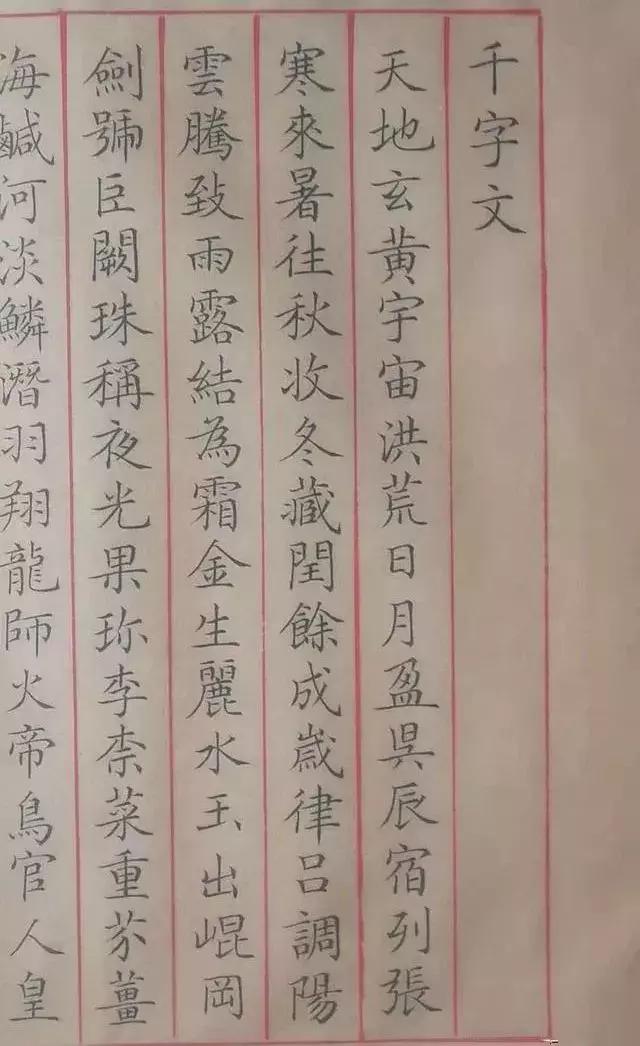 千字文
天地玄黃宇宙洪荒日月盈昃辰宿列張
寒來暑往秋收冬藏閏餘成歲律呂調陽
雲騰致雨露結為霜金生麗水玉出崐岡
劍號臣闕珠稱夜光果珎李柰菜重芥薑
海鹹河淡鱗潛羽翔龍師火帝鳥官人皇